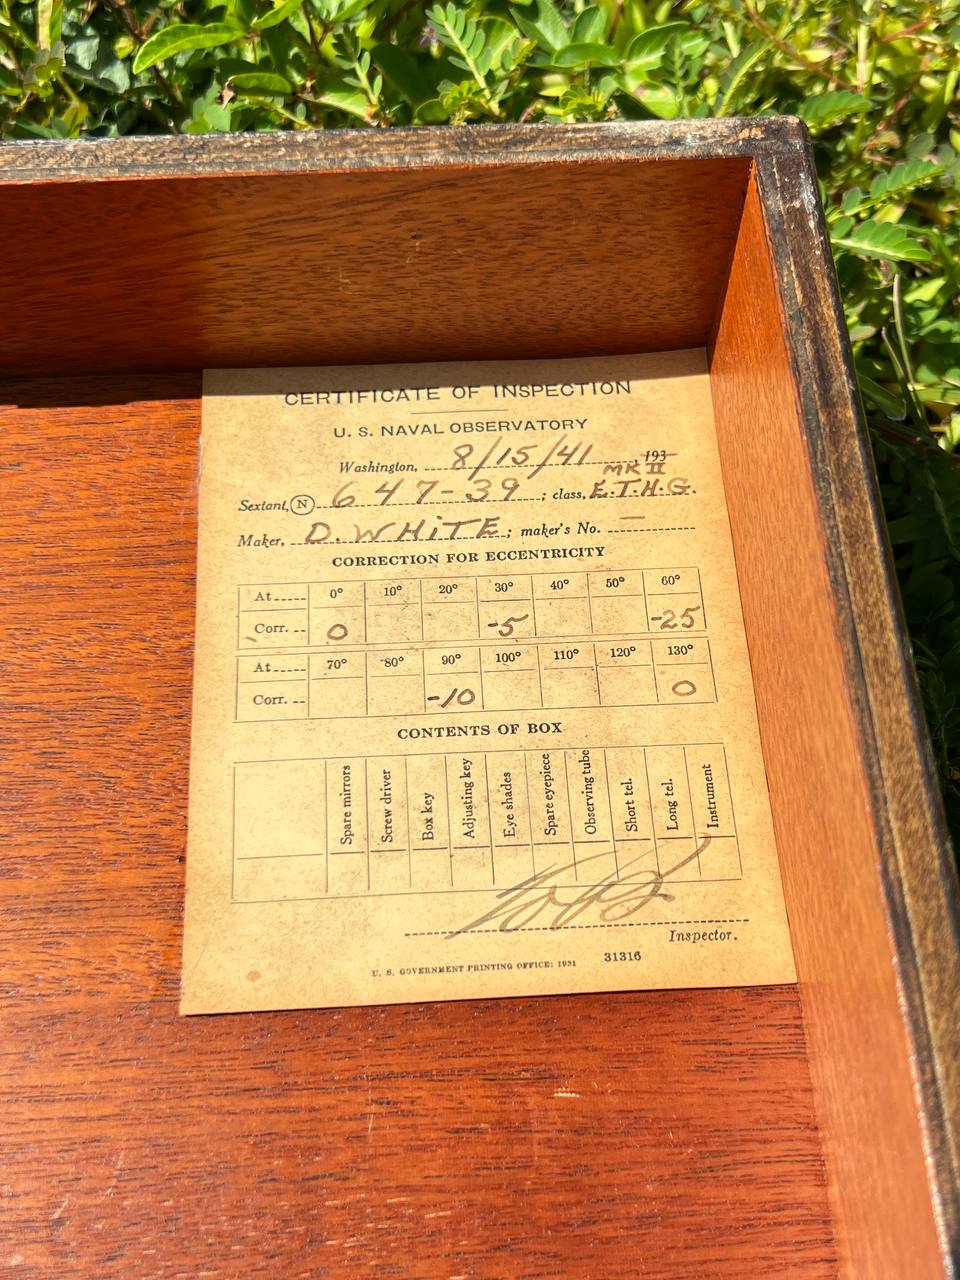 CERTIFICATE OF INSPECTION
U. S. NAVAL OBSERVATORY
Washington, 8/15/41, 193
MK II
Sextant, N 647-39; class, E.T.H.G.
Maker, D. WHITE; maker's No. —
CORRECTION FOR ECCENTRICITY
At 0° 10° 20° 30° 40° 50° 60°
Corr. 0 -5 -25
At 70° 80° 90° 100° 110° 120° 130°
Corr. -10 0
CONTENTS OF BOX
Spare mirrors Screw driver Box key Adjusting key Eye shades Spare eyepiece Observing tube Short tel. Long tel. Instrument
Inspector.
U. S. GOVERNMENT PRINTING OFFICE: 1931 31316